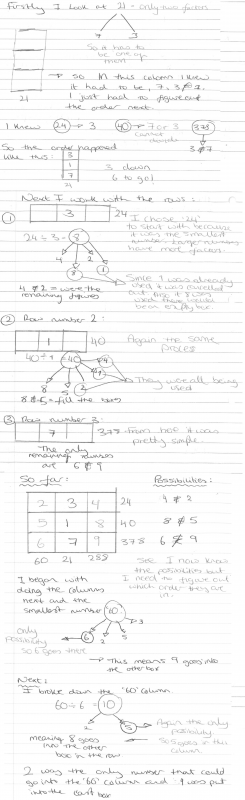 Firstly I look at 21 - only two factors
7 3
So it has to
be one of
them
→ so in this column I knew
it had to be, 7, 3 & 1.
I just had to figure out
the order next.
21
I knew 24 → 3 40 → 7 or 3 378
cannot
divide 3 & 7
So the order happened
like this: 3
1
7
21
3 down
6 to go!
Next I work with the rows:
① 3 24 I chose '24'
to start with because
it was the smallest
number. Larger numbers
have more factors.
24 ÷ 3 = 8
4 2
8 1
Since 1 was already
used it was
out
used
be an empty box.
4 & 2 = were the
remaining figures
② Row number 2:
1 40 Again the same
process
40 ÷ 1 = 40
8 5 2
They were all being
used
8 & 5 = fill the boxes
③ Row number 3
7 378 - from here it was
pretty simple.
The only
remaining numbers
are 6 & 9
So far: Possibilities:
2 3 4 24 4 & 2
5 1 8 40 8 & 5
6 7 9 378 6 & 9
60 21 288
See I now know
the possibilities but
I need to figure out
which order they are
in.
I began with
doing the columns
next and the
smallest number 10
only
possibility
so 6 goes there
6
→ This means 9 goes into
the other box
Next:
I broke down the '60' column.
60 ÷ 6 = 10
2 5
Again the only
possibility.
So 5 goes in the
column
meaning 8 goes
into the other
box in the row
2 was the only number that could
go into the '60' column and 4 was put
into the last box